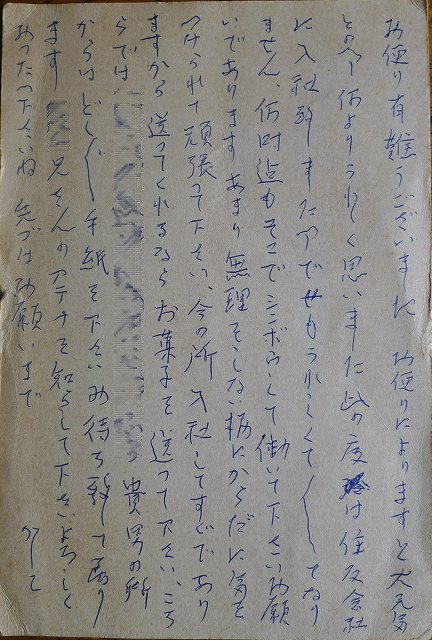 お便り有難うございました お便りによりますと大元気
とのヿ何よりうれしく思いました此の度は住友会社
に入社致しましたヿでもうれしくて〱なり
ません、何時迄もそこでシンボウして働いて下さいお願
いであります あまり無理をしない様にからだに気を
つけられて頑張って下さい、今の所入社してすぐであり
ますから 送ってくれるならお菓子を送って下さい、こち
らでは 貴男の所
からはどし〱手紙を下さいお待ち致して居り
ます 兄さんのアテナを知らして下さいよろしく
下さいね 先づはお願いまで かしこ